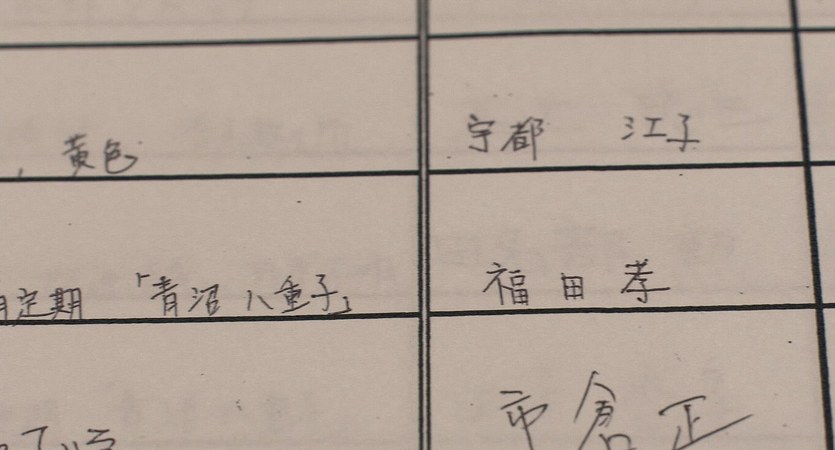 黄色
宇都 江子
定期 「青沼 八重子」
福田 孝
市倉 正